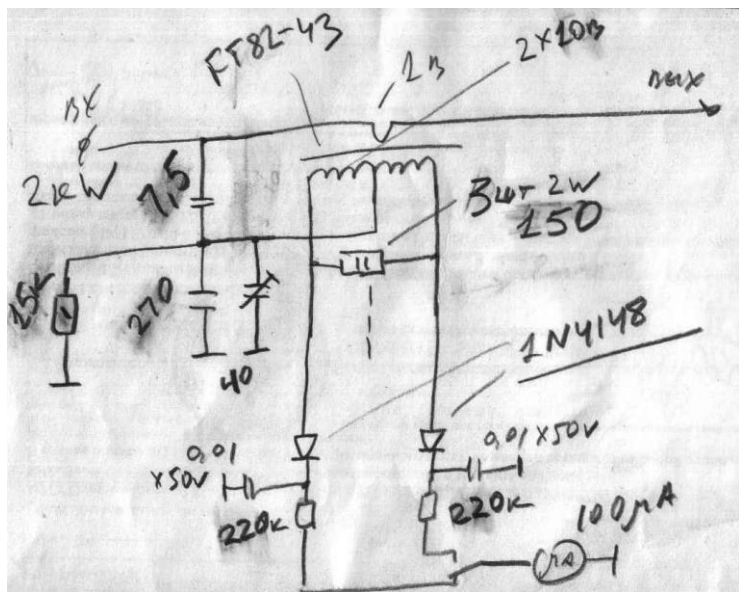 FT82-43
1в
2×10в
вх
вых
2kW
7,5
3 шт 2W
150
15к
270
40
1N4148
0,01
×50V
0,01×50V
220к
220к
100μA
μA